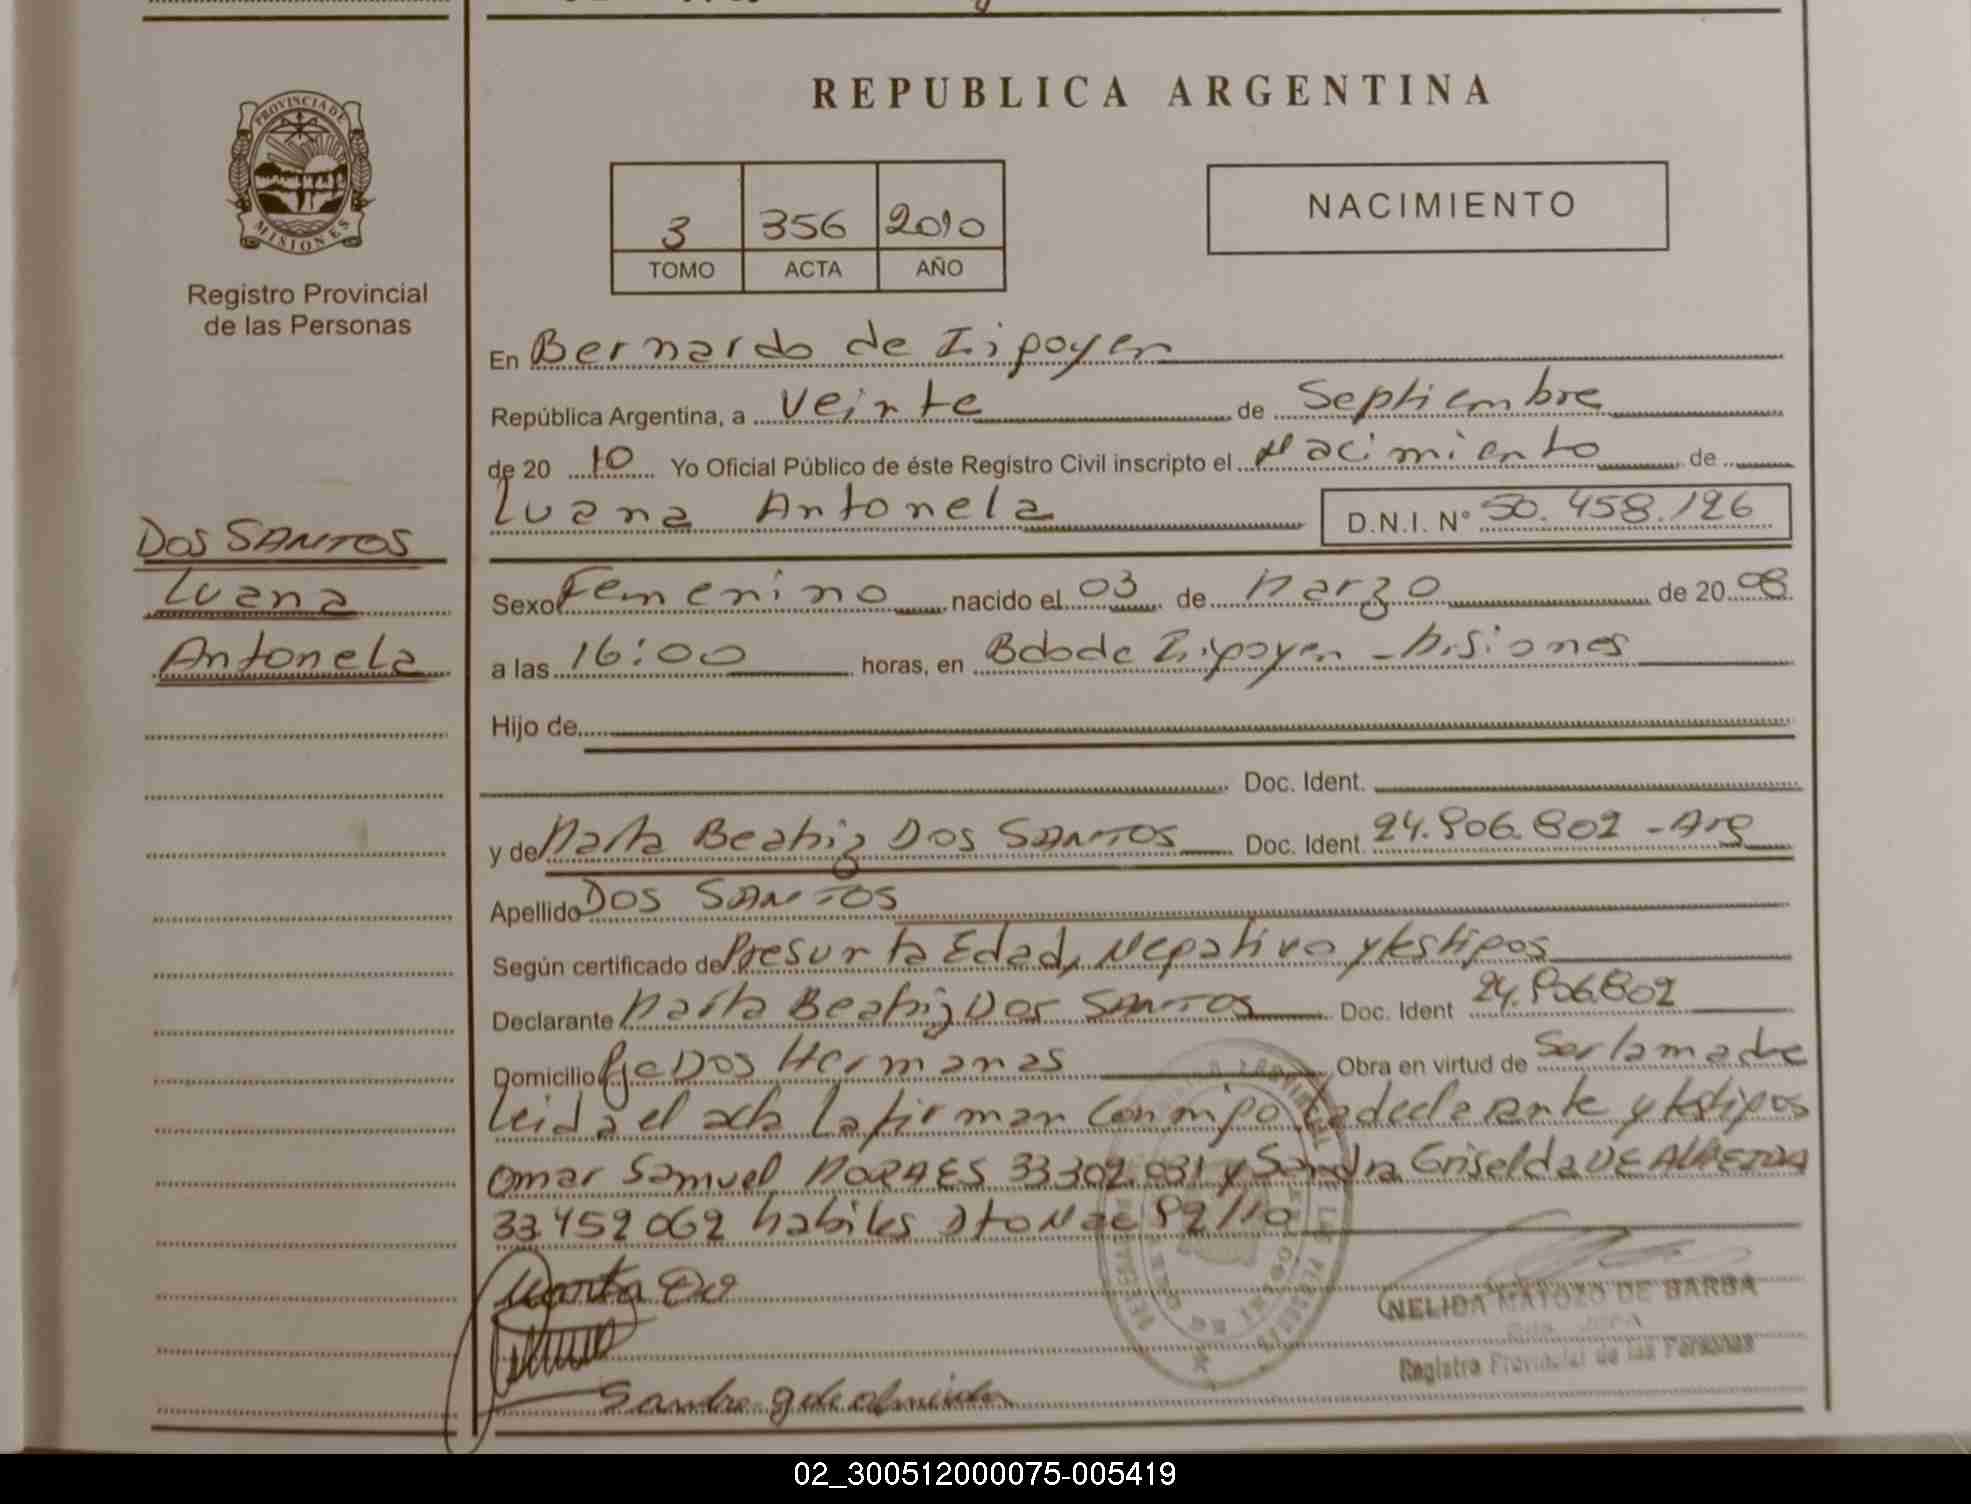 REPUBLICA ARGENTINA
PROVINCIA DE
MISIONES
Registro Provincial
de las Personas
3 356 2010
TOMO ACTA AÑO
NACIMIENTO
En Bernardo de Irigoyen
República Argentina, a veinte de Septiembre
de 20 10 Yo Oficial Público de éste Registro Civil inscripto el Nacimiento de
Luana Antonela D.N.I. N° 50.458.126
DOS SANTOS
Luana
Antonela
Sexo Femenino nacido el 03 de Marzo de 20 08
a las 16:00 horas, en Bdo de Irigoyen - Misiones
Hijo de
Doc. Ident.
y de Marta Beatriz DOS SANTOS Doc. Ident. 24.906.802 - Arg
Apellido DOS SANTOS
Según certificado de Presunta Edad, Negativo y testigos
Declarante Marta Beatriz Dos SANTOS Doc. Ident 24.906.802
Domicilio Pje Dos Hermanas Obra en virtud de Ser la madre
Leida el acta la firman conmigo la declarante y testigos
Omar Samuel MORAES 33.302.031 y Sandra Griselda DE ALMEIDA
33.459.062 habiles 92/10
Marta
Sandra g de almeida
NELIDA MATOZO DE BARBA
Registro Provincial de las Personas
02_300512000075-005419